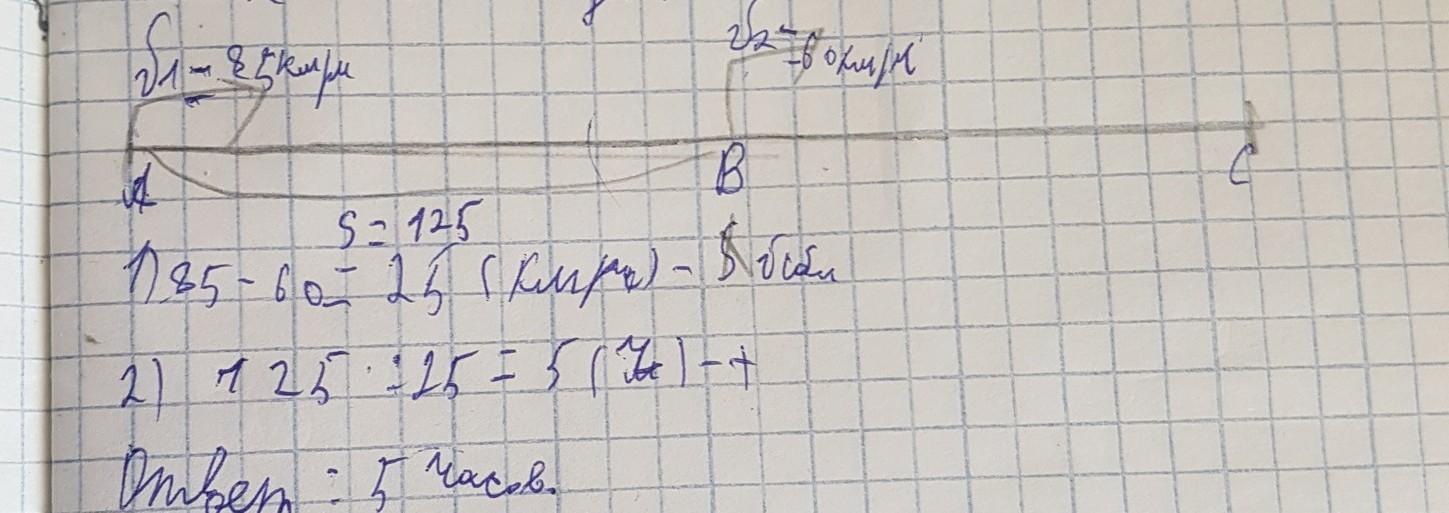 V1 = 85 км/ч
V2 = 60 км/ч
A B C
S = 125
1) 85 - 60 = 25 (км/ч) -
2) 125 : 25 = 5 (ч) - t
Ответ : 5 часов.